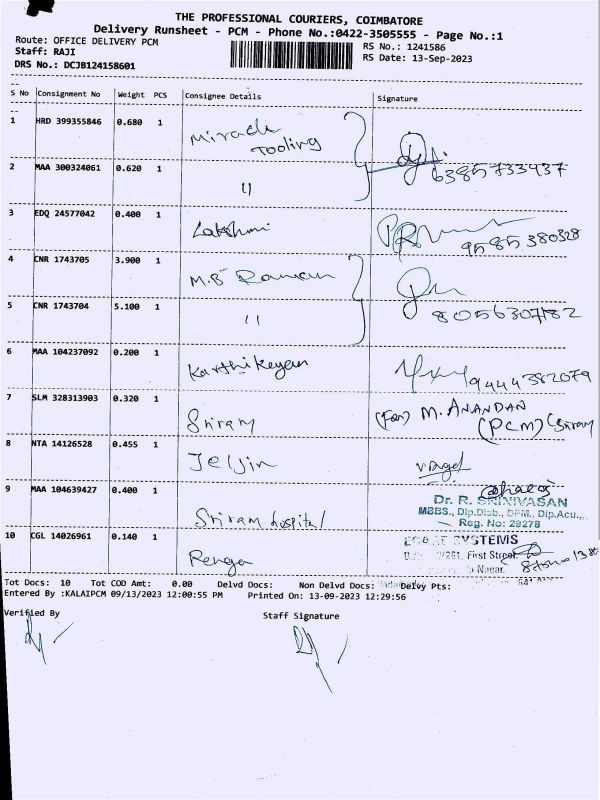 THE PROFESSIONAL COURIERS, COIMBATORE
Delivery Runsheet - PCM - Phone No.:0422-3505555 - Page No.:1
Route: OFFICE DELIVERY PCM
RS No.: 1241586
Staff: RAJI
RS Date: 13-Sep-2023
DRS No.: DCJB124158601
S No Consignment No Weight PCS Consignee Details Signature
1 HRD 399355846 0.680 1 Miracle Tooling
2 MAA 300324061 0.620 1 " 6385733437
3 EDQ 24577042 0.400 1 Lakshmi 9585380328
4 CNR 1743705 3.900 1 M.B Raman
5 CNR 1743704 5.100 1 " 8056307182
6 MAA 104237092 0.200 1 Karthikeyan 9444382079
7 SLM 328313903 0.320 1 Sriram (For) M. ANANDAN (PCM) (Sriram
8 NTA 14126528 0.455 1 Jeljin
9 MAA 104639427 0.400 1 Sriram hospital
Dr. R. SRINIVASAN
MBBS., Dip.Diab., DPM., Dip.Acu.,
Reg. No: 28278
10 CGL 14026961 0.140 1 Renga
SYSTEMS
First Street
Nagar,
Tot Docs: 10 Tot COD Amt: 0.00 Delvd Docs: Non Delvd Docs: Delvy Pts:
Entered By :KALAIPCM 09/13/2023 12:00:55 PM Printed On: 13-09-2023 12:29:56
Verified By Staff Signature